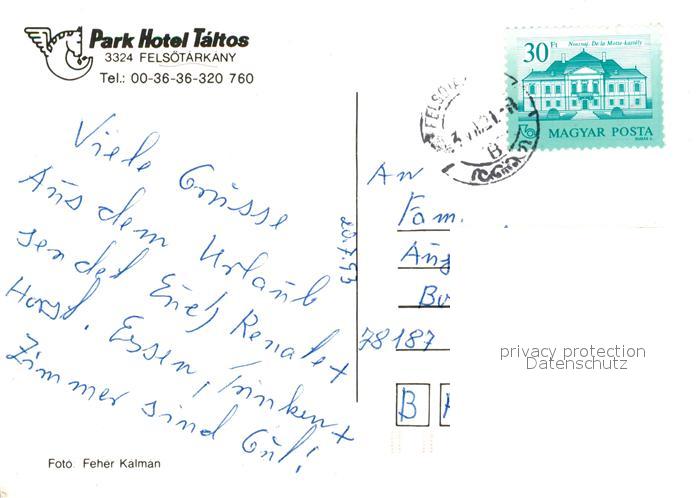 Park Hotel Táltos
3324 FELSŐTÁRKÁNY
Tel.: 00-36-36-320 760
30 Ft
Noszvaj. De la Motte-kastély
MAGYAR POSTA
Viele Grüsse
Aus dem Urlaub
sendet Euch Renate +
Horst. Essen, Trinken +
Zimmer sind Gut!
20.7.93
An
Fam.
78187
B
Foto: Feher Kalman
privacy protection
Datenschutz